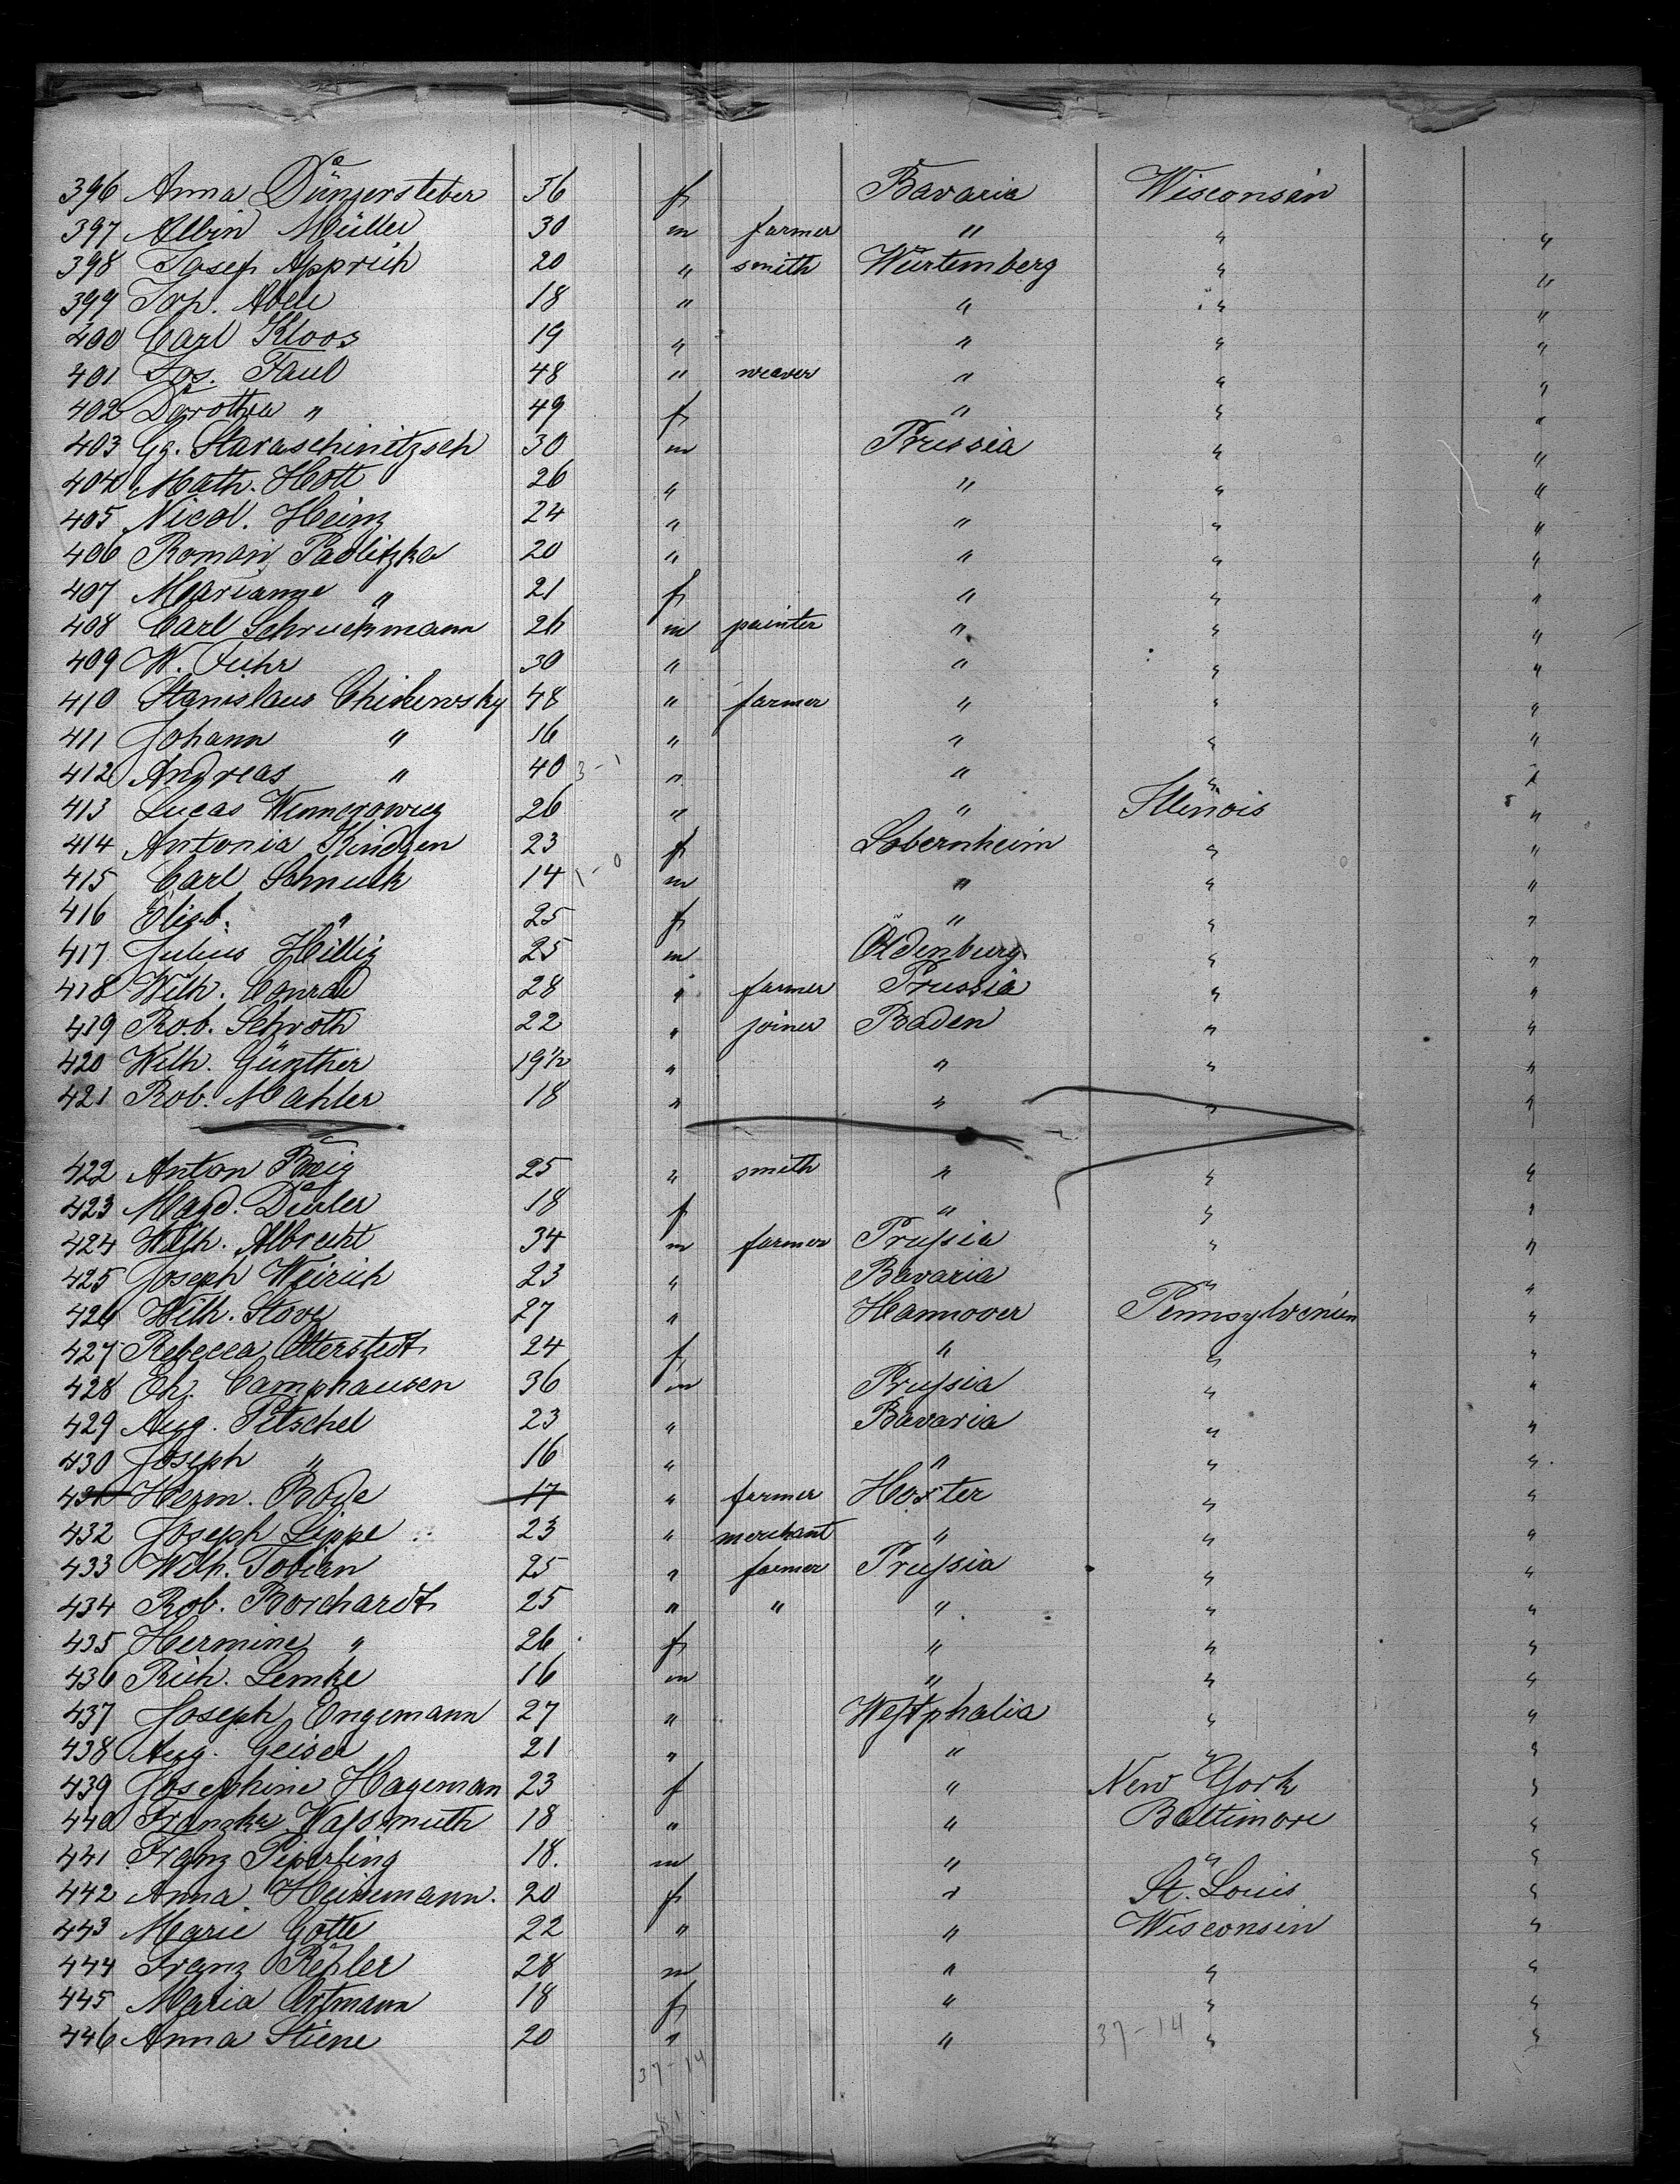 396 Anna Dünzersteber 36 f Bavaria Wisconsin
397 Albin Müller 30 m farmer " " "
398 Josef Apprich 20 " smith Würtemberg " "
399 Jos. Abele 18 " " " "
400 Carl Kloos 19 " " " "
401 Jos. Faul 48 " weaver " " "
402 Dorothea " 49 f " " "
403 Gg. Staraschinitzsch 30 m Prussia " "
404 Math. Hott 26 " " " "
405 Nicol. Heinz 24 " " " "
406 Roman Padlitzka 20 " " " "
407 Marianne " 21 f " " "
408 Carl Schruckmann 26 m painter " " "
409 W. Fuhr 30 " " " "
410 Stanislaus Chickewsky 48 " farmer " " "
411 Johann " 16 " " " "
412 Andreas " 40 3-1 " " " "
413 Lucas 26 " " Illinois "
414 Antonia Kindgen 23 f Sobernheim " "
415 Carl Schmuck 14 1-0 m " " "
416 Elisb. " 25 f " " "
417 Julius Hillig 25 m Oldenburg " "
418 Wilh. Conrad 28 " farmer Prussia " "
419 Rob. Schroth 22 " joiner Baden " "
420 Wilh. Günther 19½ " " " "
421 Rob. Mahler 18 " " " "
422 Anton 25 " smith " " "
423 Magd. Dürler 18 f " " "
424 Wilh. Albrecht 34 m farmer Prussia " "
425 Joseph Weirich 23 " Bavaria " "
426 Wilh. Stove 27 " Hannover Pennsylvenien "
427 Rebecca Otterstedt 24 f " " "
428 Eh. Camphausen 36 m Prussia " "
429 Aug. Pitschel 23 " Bavaria " "
430 Joseph " 16 " " " "
431 Herm. Bode 17 " farmer Hoxter " "
432 Joseph Lippe 23 " merchant " " "
433 Wilh. Tobian 25 " farmer Prussia " "
434 Rob. Borchardt 25 " " " " "
435 Hermine " 26 f " " "
436 Rich. Lemke 16 m " " "
437 Joseph Engemann 27 " Westphalia " "
438 Aug. Geisel 21 " " " "
439 Josephine Hageman 23 f " New York "
440 Franzka Wassmuth 18 " " Baltimore "
441 Franz Piperling 18. m " " "
442 Anna Heinemann. 20 f " St. Louis "
443 Marie Gotte 22 " " Wisconsin "
444 Franz Kepler 28 m " " "
445 Maria Ortmann 18 f " " "
446 Anna Stiene 20 " " 37-14 " "
37-14